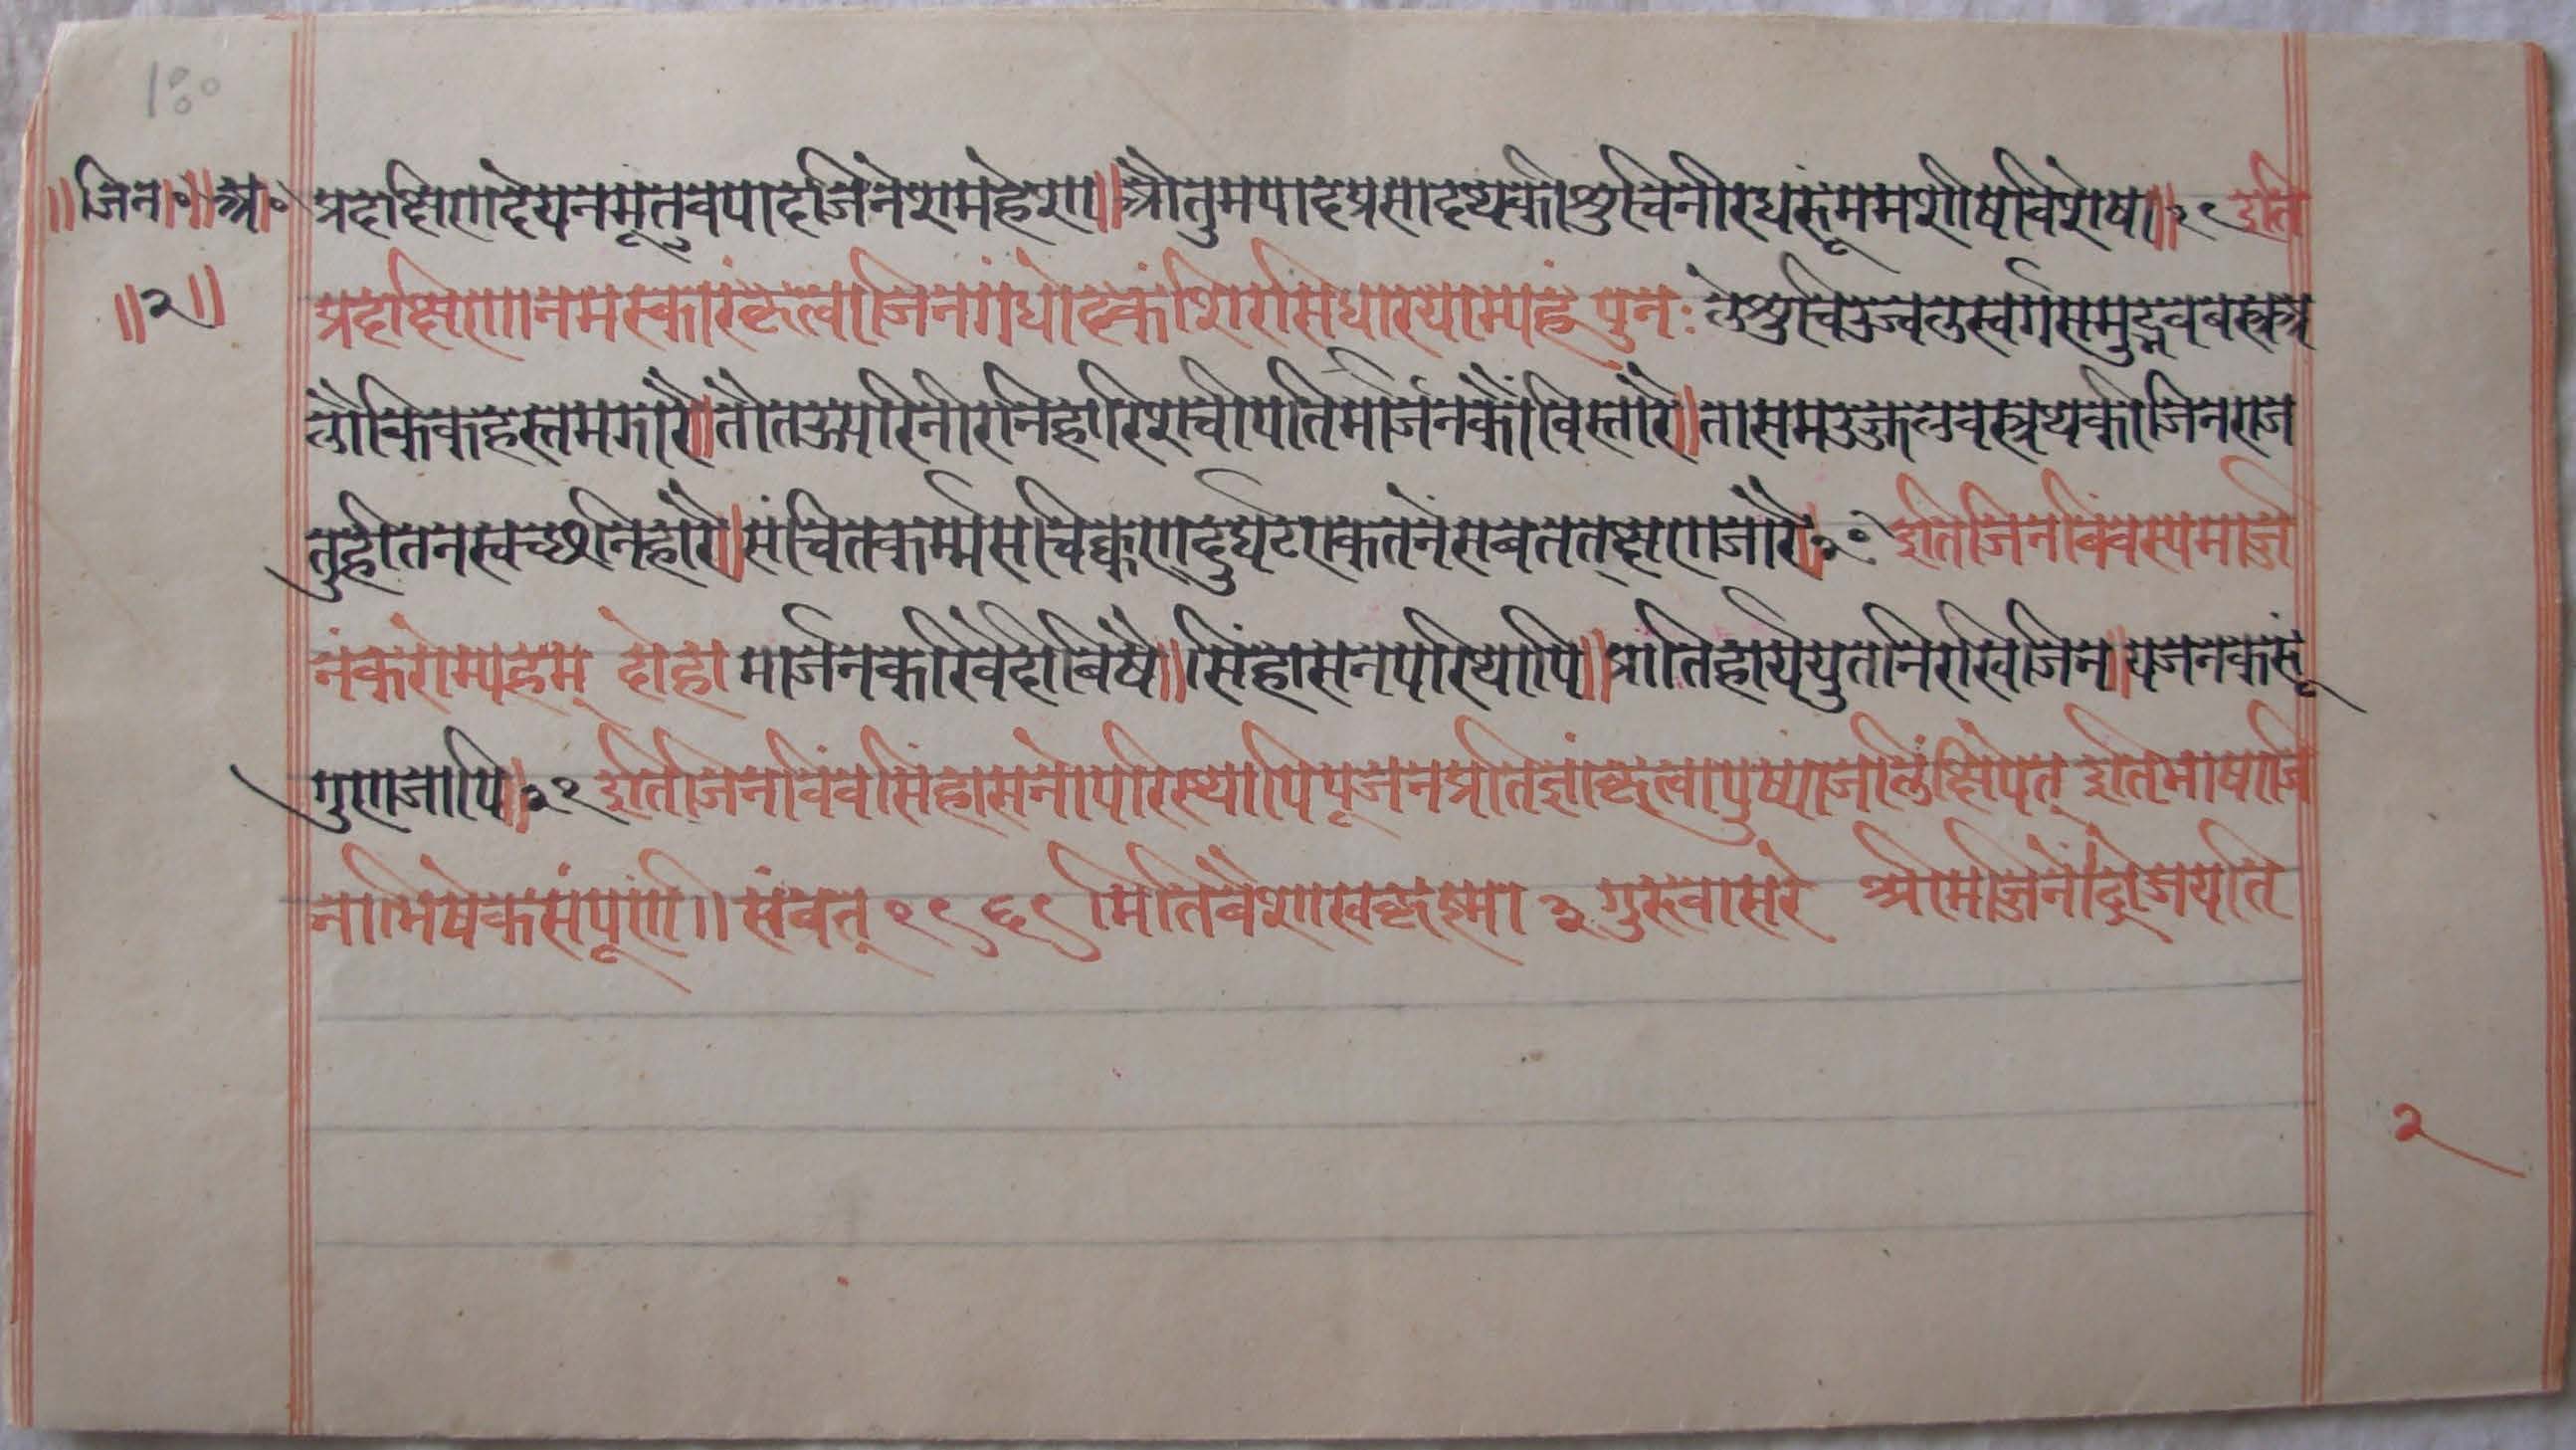 ॥जिन॰॥अ॰ प्रदक्षिणदेयनमूतुवपादजिनेशमहेशा॥औतुमपादप्रसादथकीशुचिनीरधरूंममशीषविशेषा॥२९ इति
॥२॥ प्रदक्षिणानमस्कारंकृत्वाजिनगंधोदकंशिरसिधारयाम्यहं पुनः लेशुचिउज्वलस्वर्गसमुद्भववस्त्रअ
लौकिकहस्तमगारै॥तौतऊपरिनीरनिहारिशचीपतिमार्जनकौंविस्तारै॥तासमउज्जलवस्त्रथकीजिनराज
तुहीतनस्वच्छनिहारै॥संचितकर्म्मसचिक्कणदुघटाकतनेसबततक्षणजारै॥३॰ इतिजिनबिंवस्यमार्ज
नंकरोम्यहम् दोहा मार्जनकरिवेदीबिषै॥सिंहासनपरिथापि॥प्रातिहार्ययुतनिरखिजिन॥यजनकरूं
गुणजापि॥३१ इतिजिनविंवसिंहासनोपरिस्थापिपूजनप्रतिज्ञांकृत्वापुष्पांजलिंक्षिपेत् इतिभाषाजि
नाभिषेकसंपूर्णं॥ संवत् १९६९ मितिवैशाखकृष्णा ३ गुरुवासरे श्रीमज्जिनेंद्रोजयति
२